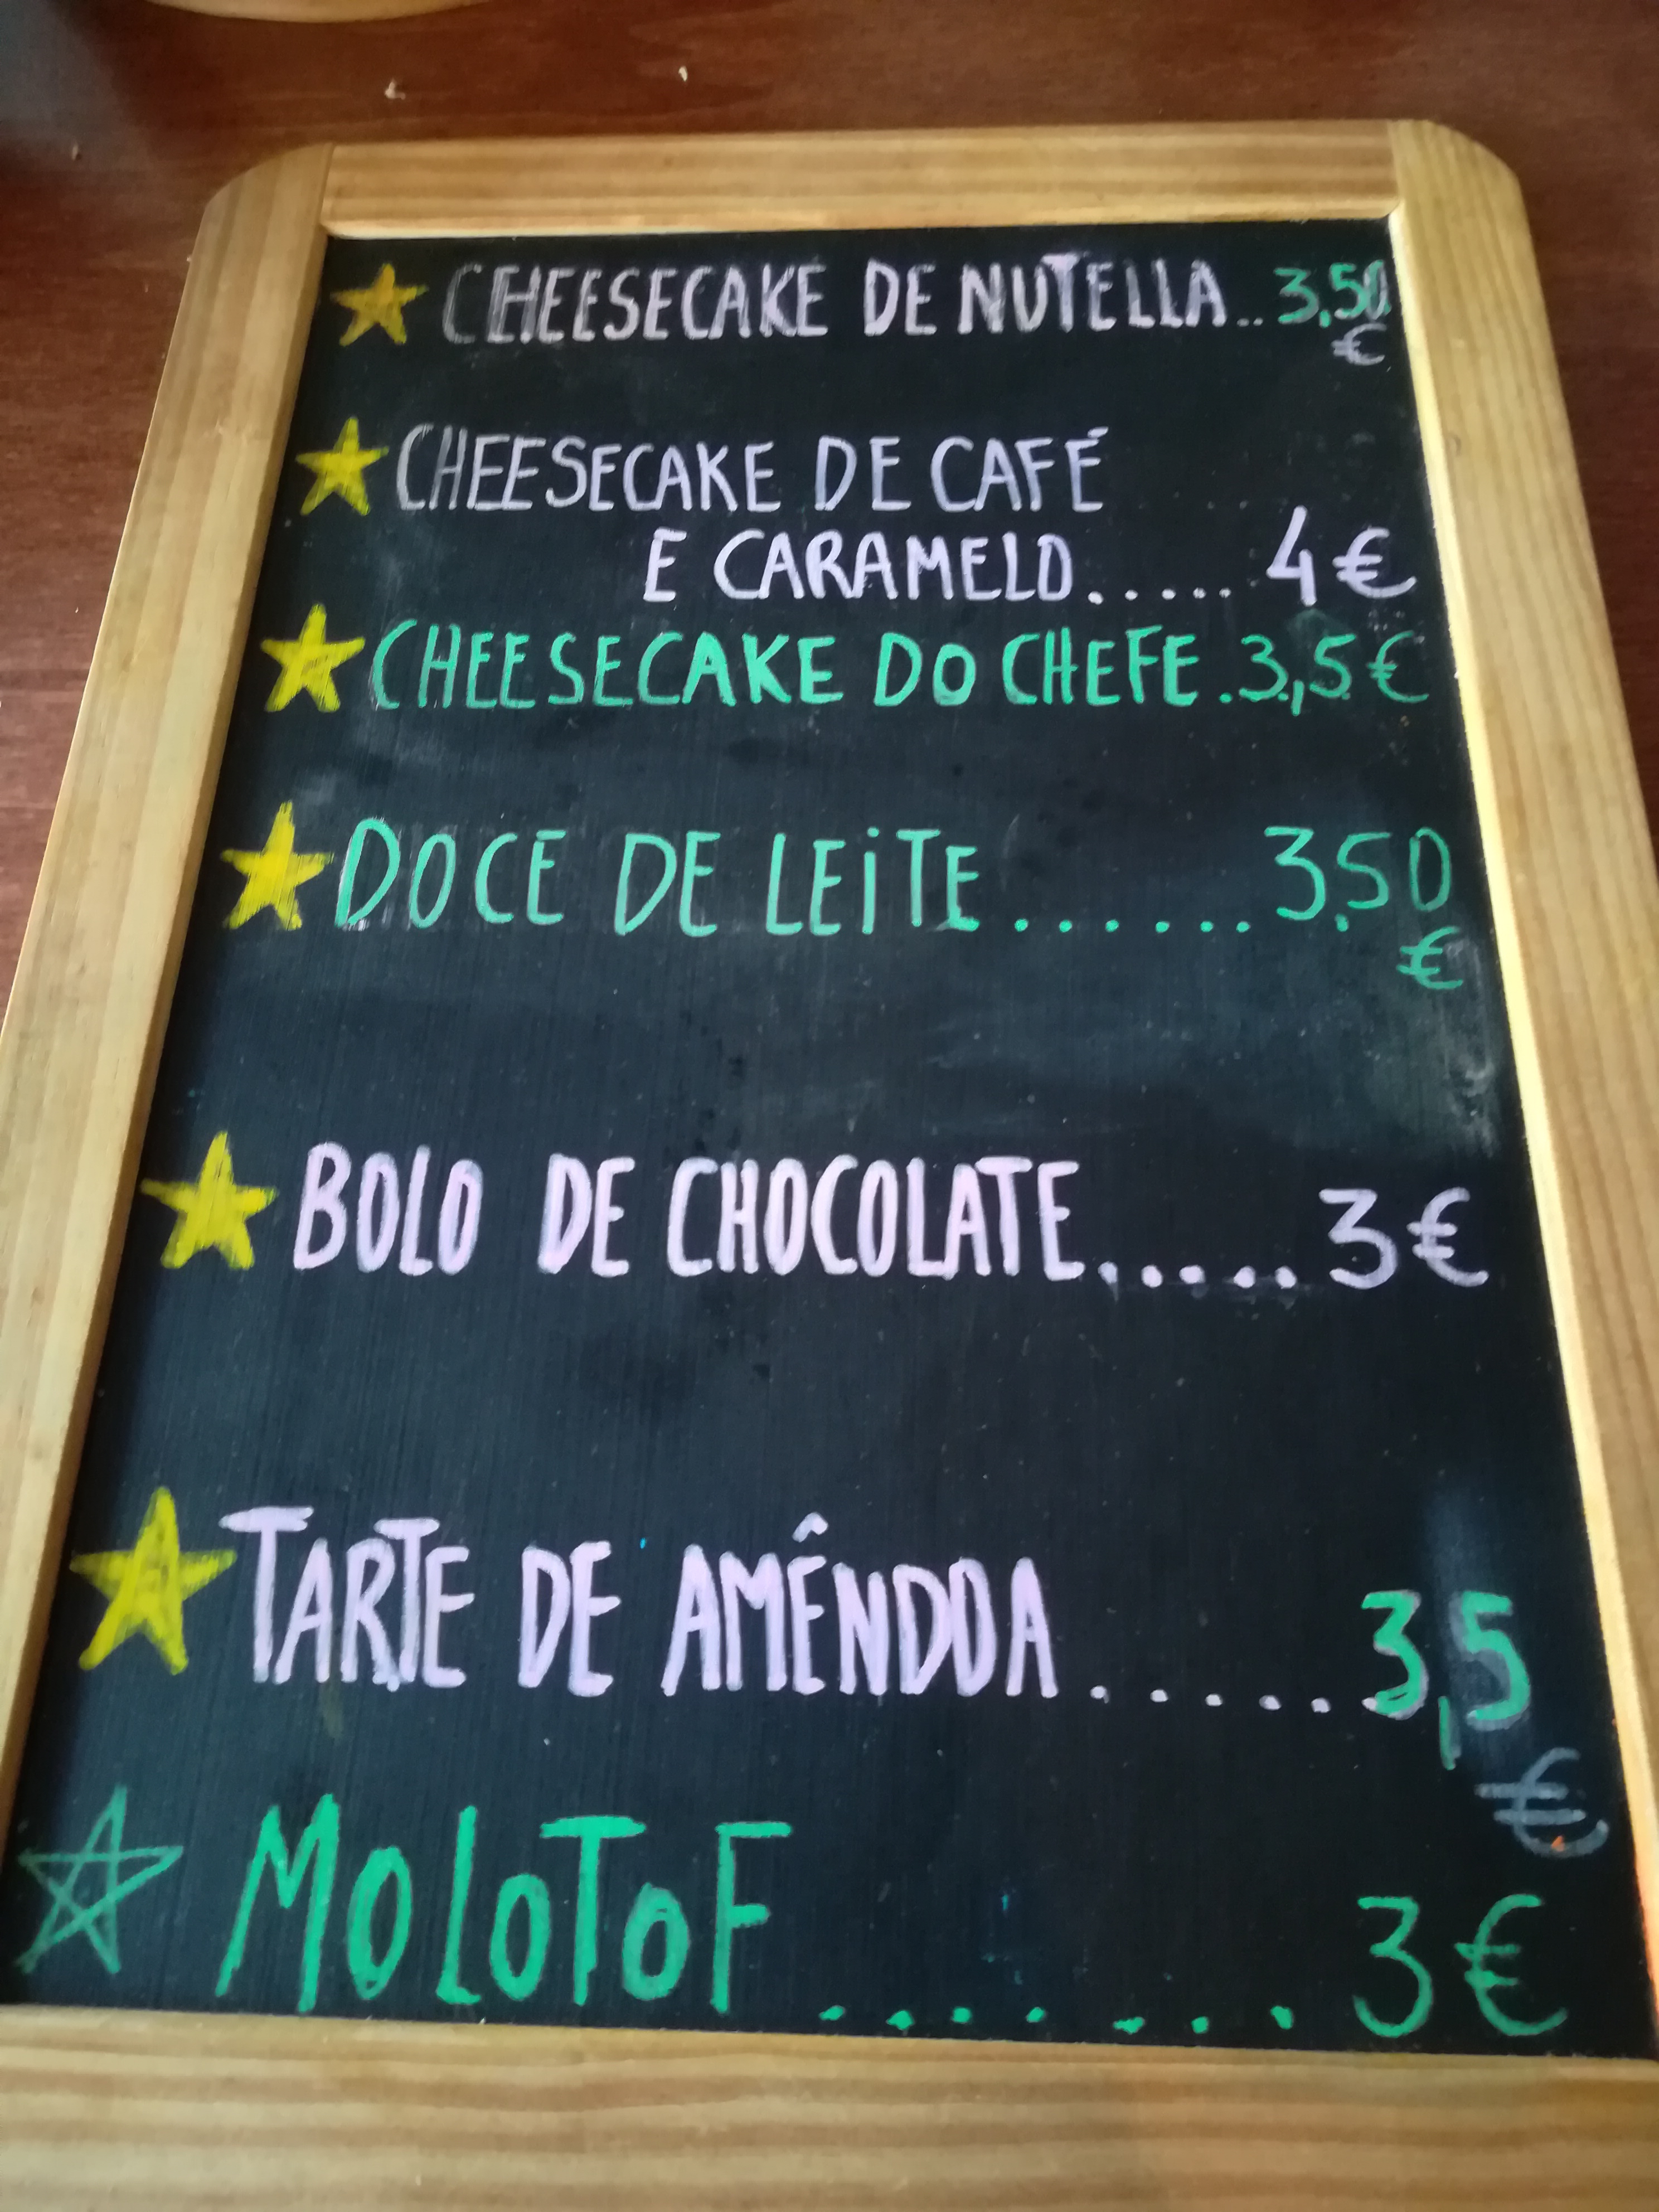 CHEESECAKE DE NUTELLA..3,50
€
CHEESECAKE DE CAFÉ
E CARAMELO..... 4€
CHEESECAKE DO CHEFE.3,5€
DOCE DE LEiTE......3,50
€
BOLO DE CHOCOLATE.....3€
TARTE DE AMÊNDOA.....3,5
€
MOLOTOF.......3€